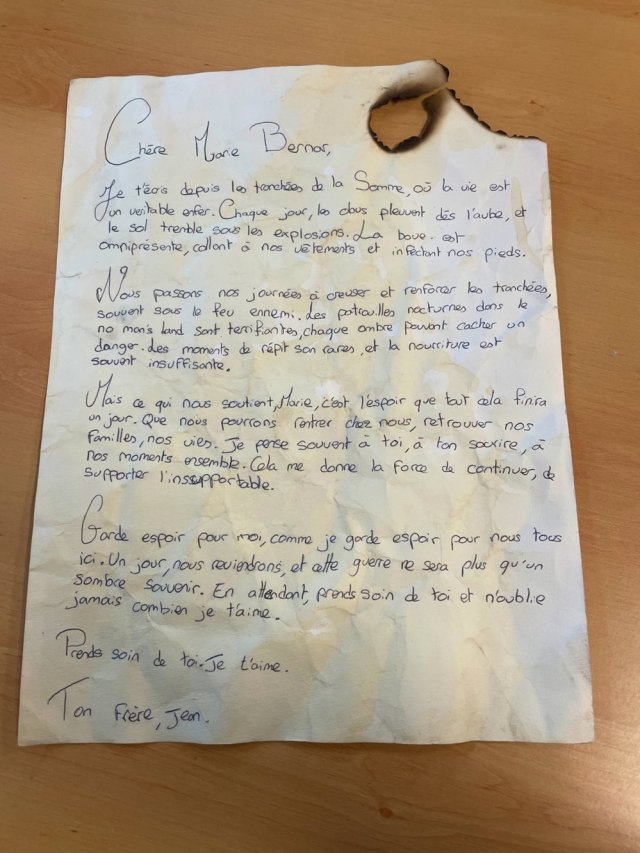 Chère Marie Bernar,
Je t'écris depuis les tranchées de la Somme, où la vie est
un veritable enfer. Chaque jour, les obus pleuvent dés l'aube, et
le sol tremble sous les explosions. La boue est
omniprésente, collant à nos vêtements et infectant nos pieds.
Nous passons nos journées à creuser et renforcer les tranchées,
souvent sous le feu ennemi. Les patrouilles nocturnes dans le
no man's land sont terrifiantes, chaque ombre pouvant cacher un
danger. Les moments de répit son rares, et la nourriture est
souvent insuffisante.
Mais ce qui nous soutient, Marie, c'est l'espoir que tout cela finira
un jour. Que nous pourrons rentrer chez nous, retrouver nos
familles, nos vies. Je pense souvent à toi, à ton sourire, à
nos moments ensemble. Cela me donne la force de continuer, de
supporter l'inssupportable.
Garde espoir pour moi, comme je garde espoir pour nous tous
ici. Un jour, nous reviendrons, et cette guerre ne sera plus qu'un
sombre souvenir. En attendant, prends soin de toi et n'oublie
jamais combien je t'aime.
Prends soin de toi. Je t'aime.
Ton Frère, Jean.